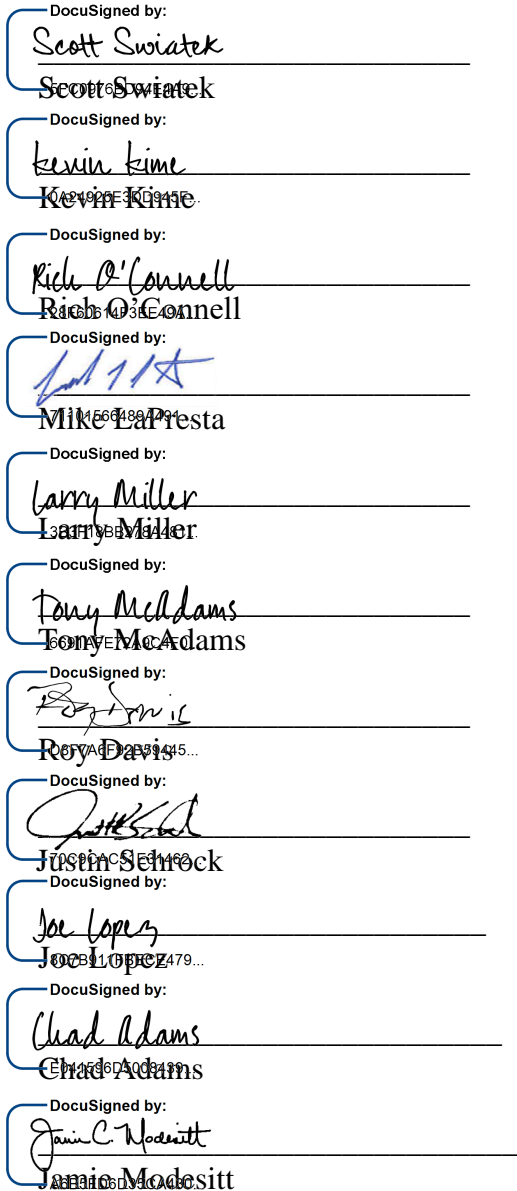 DocuSigned by:
Scott Swiatek
Scott Swiatek
DocuSigned by:
Kevin Kime
Kevin Kime
DocuSigned by:
Rich O'Connell
Rich O’Connell
DocuSigned by:
Mike LaPresta
DocuSigned by:
Larry Miller
Larry Miller
DocuSigned by:
Tony McAdams
Tony McAdams
DocuSigned by:
Roy Davis
Roy Davis
DocuSigned by:
Justin Schrock
DocuSigned by:
Joe Lopez
Joe Lopez
DocuSigned by:
Chad Adams
Chad Adams
DocuSigned by:
Jamie C. Modesitt
Jamie Modesitt